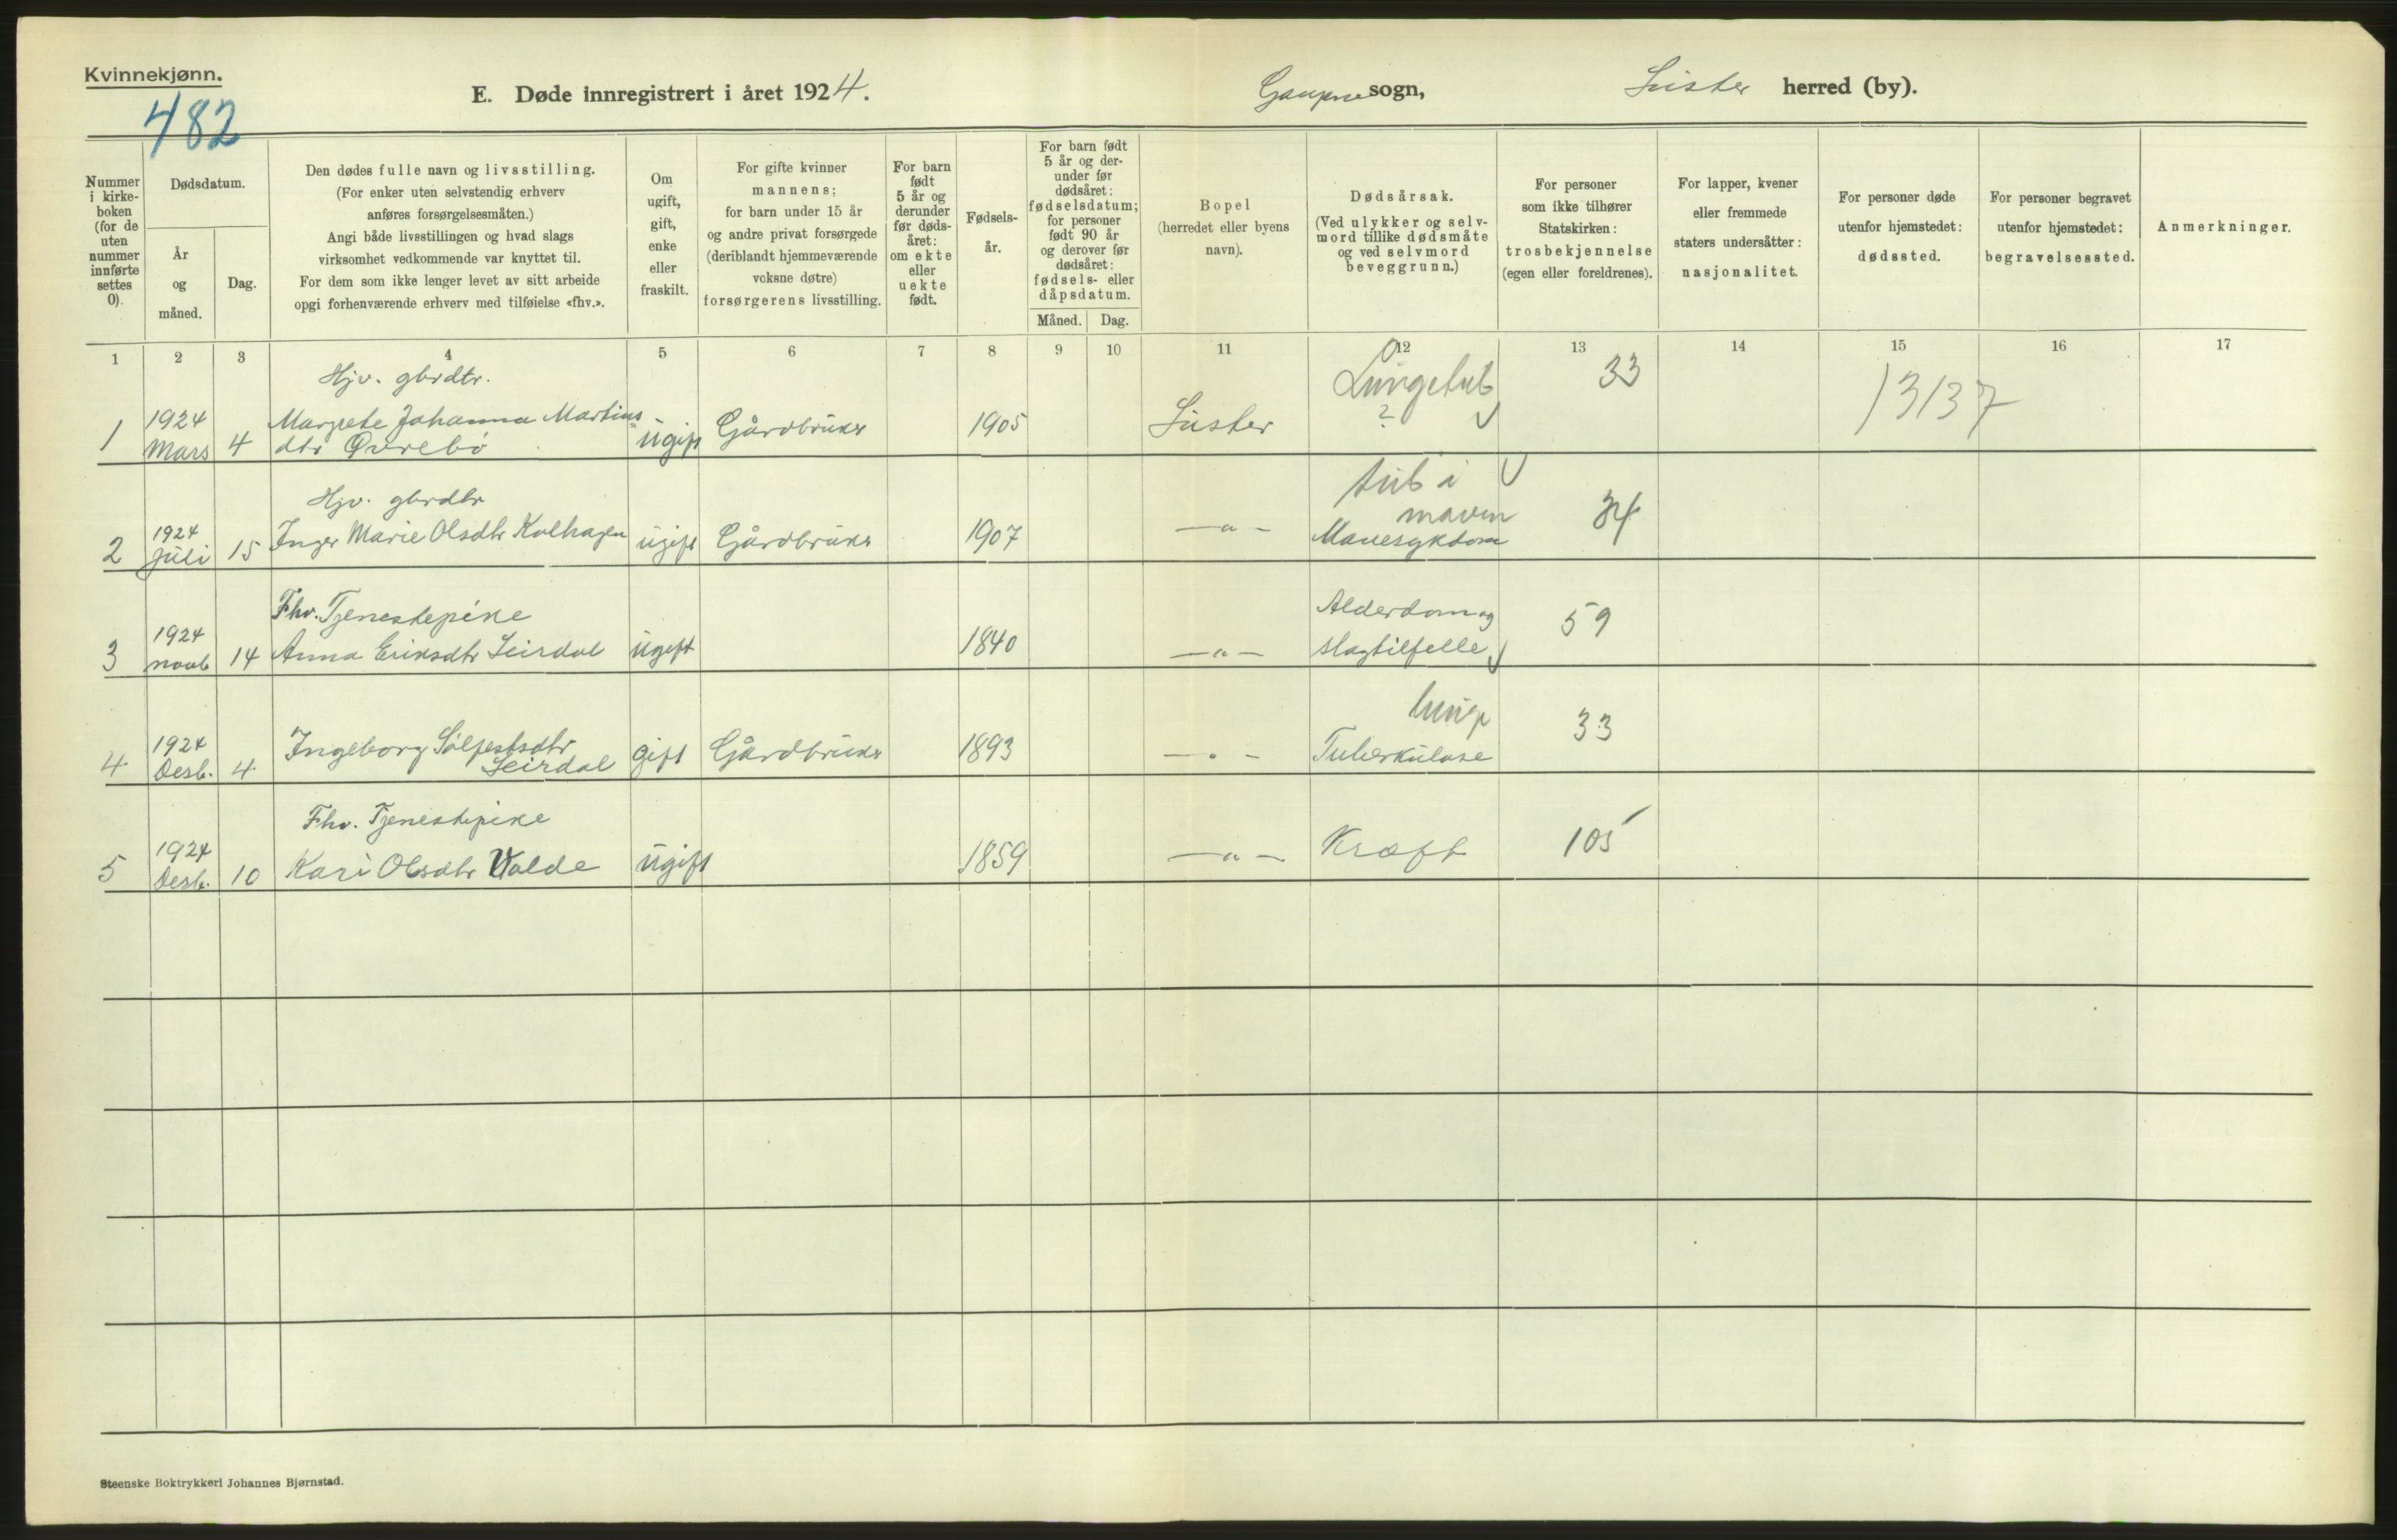 Kvinnekjønn.
482
E. Døde innregistrert i året 1924.
Gaupne sogn,
Luster herred (by).
Nummer i kirke- boken (for de uten nummer innførte settes 0).
Dødsdatum.
År og måned.
Dag.
Den dødes fulle navn og livsstilling.
(For enker uten selvstendig erhverv
anføres forsørgelsesmåten.)
Angi både livsstillingen og hvad slags
virksomhet vedkommende var knyttet til.
For dem som ikke lenger levet av sitt arbeide
opgi forhenværende erhverv med tilføielse «fhv.».
Om ugift, gift, enke eller fraskilt.
For gifte kvinner
mannens;
for barn under 15 år
og andre privat forsørgede
(deriblandt hjemmeværende
voksne døtre)
forsørgerens livsstilling.
For barn født 5 år og derunder før døds- året: om ekte eller uekte født.
Fødsels- år.
For barn født 5 år og der- under før dødsåret: fødselsdatum; for personer født 90 år og derover før dødsåret: fødsels- eller dåpsdatum.
Måned. Dag.
Bopel
(herredet eller byens
navn).
Dødsårsak.
(Ved ulykker og selv-
mord tillike dødsmåte
og ved selvmord
beveggrunn.)
For personer
som ikke tilhører
Statskirken:
trosbekjennelse
(egen eller foreldrenes).
For lapper, kvener
eller fremmede
staters undersåtter:
nasjonalitet.
For personer døde
utenfor hjemstedet:
dødssted.
For personer begravet
utenfor hjemstedet:
begravelsessted.
Anmerkninger.
1 2 3 4 5 6 7 8 9 10 11 12 13 14 15 16 17
Hjv. gbrdtr. Lungetub 33
1 1924 Mars 4 Margrete Johanna Martins dtr Øvrebø ugift Gårdbruker 1905 Luster ? 13137
Hjv. gbrdtr tub i maven
2 1924 Juli 15 Inger Marie Olsdtr Kolhagen ugift Gårdbruker 1907 —"— Mavesykdom 34
Fhv. Tjenestepike Alderdom og
3 1924 novb 14 Anna Eriksdtr Leirdal ugift 1840 —"— slagtilfelle 59
lunge
4 1924 Desb. 4 Ingeborg Sølfestsdtr Leirdal gift Gårdbruker 1893 —"— Tuberkulose 33
Fhv. Tjenestepike
5 1924 Desb. 10 Kari Olsdtr Valde ugift 1859 —"— Kræft 105
Steenske Boktrykkeri Johannes Bjørnstad.